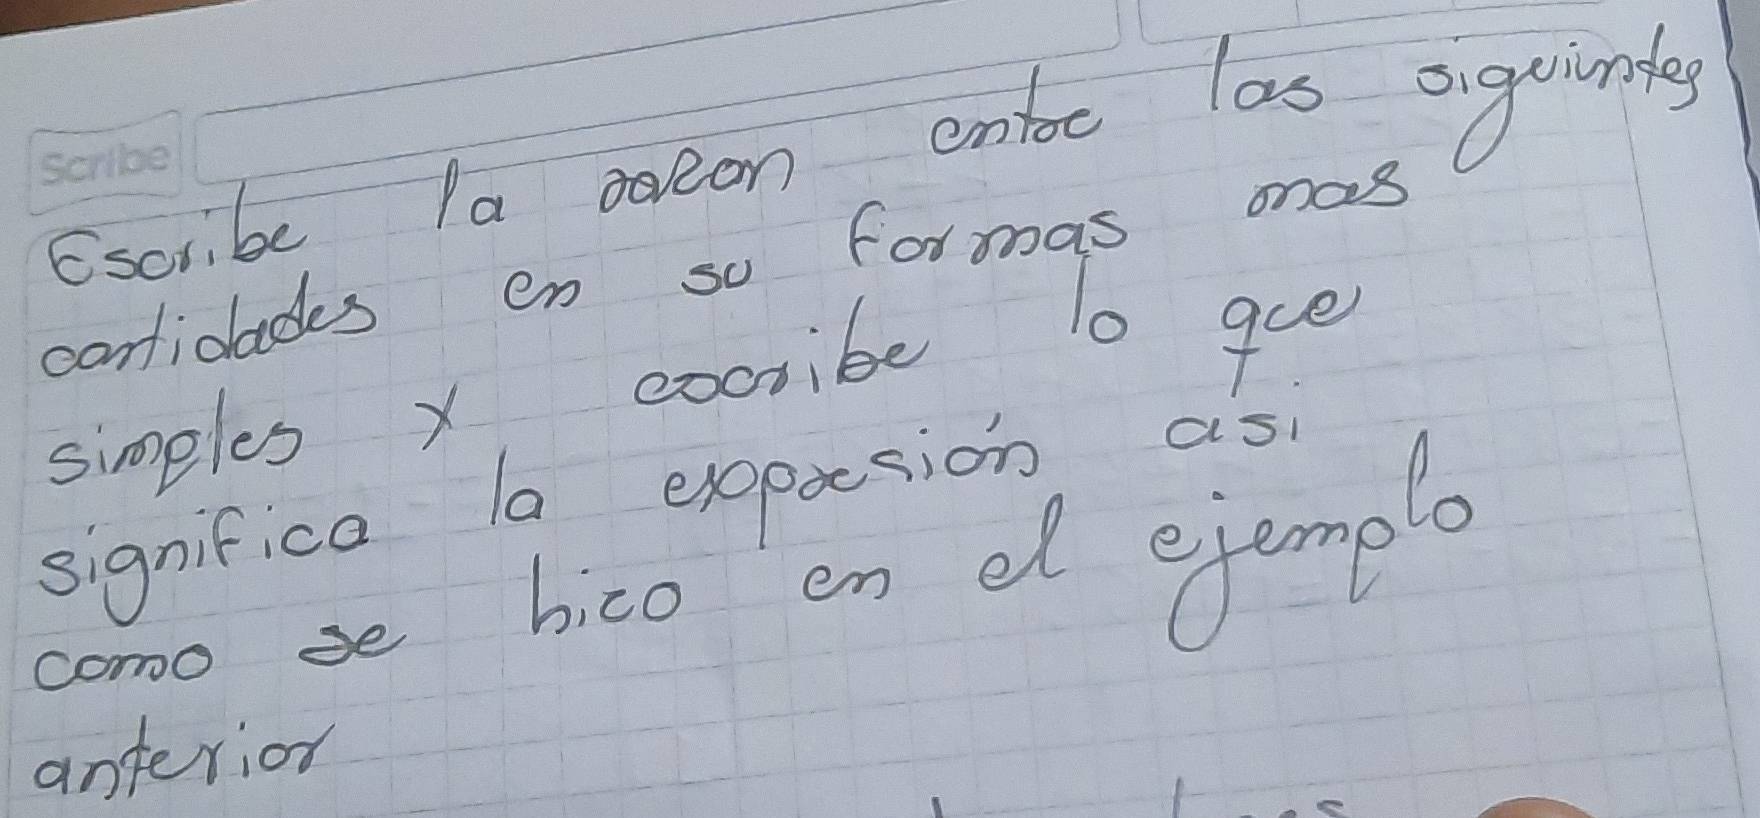 scribe
Escribe la razon entre las siguintes
cantidades en su formas mas
simples y escribe lo que
significa la expresión asi
como se hizo en el ejemplo
anterior